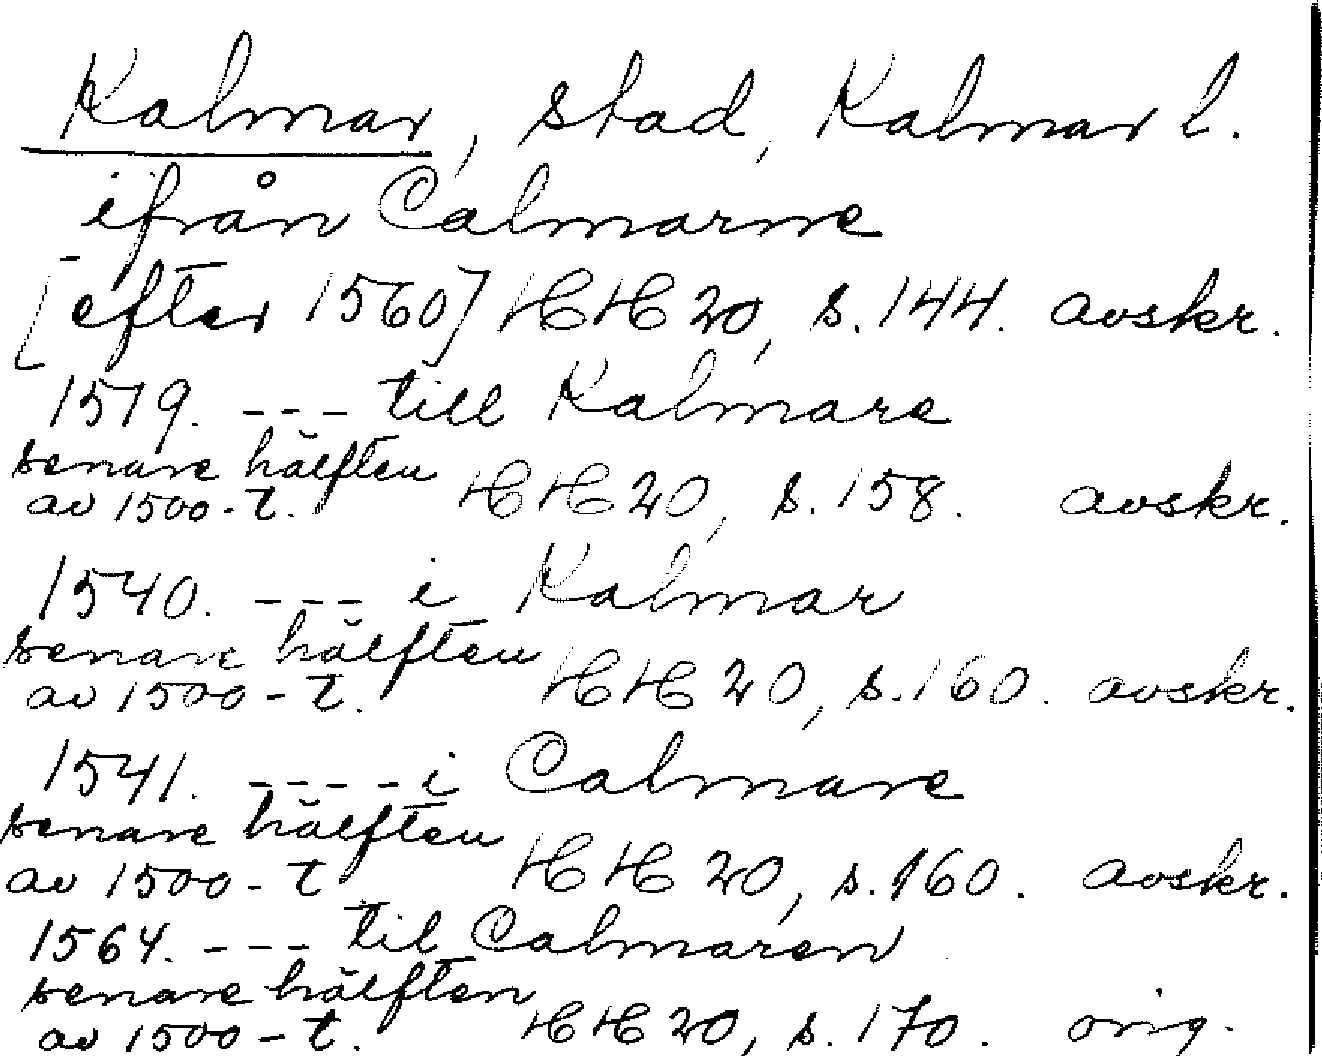 Kalmar, stad, Kalmar l.
ifrån Calmarne
[efter 1560] HH 20, s. 144. avskr.
1519. --- till Kalmare
senare hälften
av 1500-t. HH 20, s. 158. avskr.
1540. --- i Kalmar
senare hälften
av 1500-t. HH 20, s. 160. avskr.
1541. ---- i Calmare
senare hälften
av 1500-t HH 20, s. 160. avskr.
1564. --- til Calmaren
senare hälften
av 1500-t. HH 20, s. 170. orig.